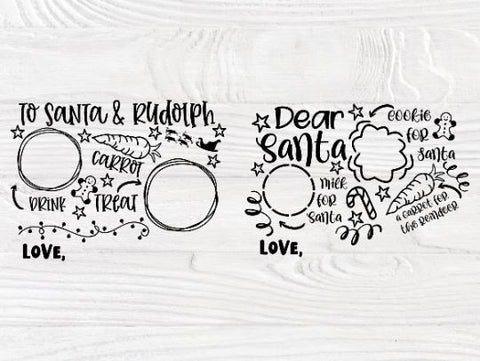 To Santa & Rudolph
CARROT
DRINK
TREAT
LOVE,
Dear
Santa
Cookie
FOR
Santa
Milk
FOR
Santa
a carrot for
the reindeer
LOVE,